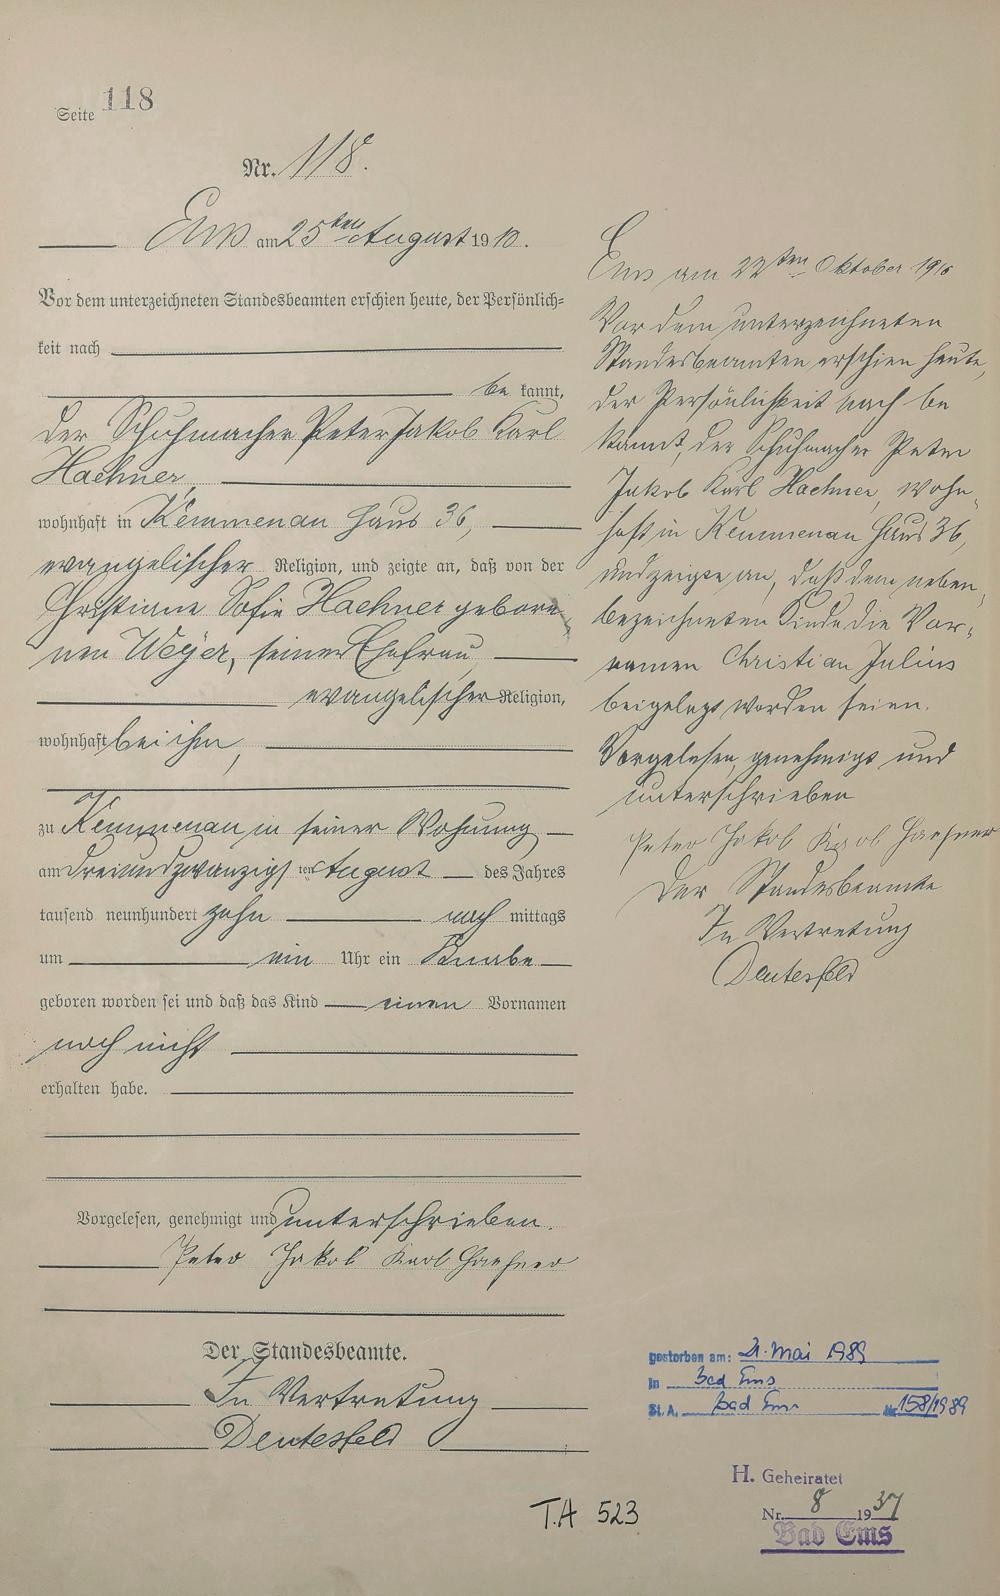 Seite 118
Nr. 118.
Ems am 25ten August 1910.
Vor dem unterzeichneten Standesbeamten erschien heute, der Persönlich=
keit nach
be kannt,
der Schuhmacher Peter Jakob Karl
Haehner,
wohnhaft in Kemmenau Haus 36,
evangelischer Religion, und zeigte an, daß von der
Christiane Sofie Haehner gebore
nen Weyer, seiner Ehefrau
evangelischer Religion,
wohnhaft bei ihm,
zu Kemmenau in seiner Wohnung
am dreiundzwanzigsten August des Jahres
tausend neunhundert zehn nach mittags
um ein Uhr ein Knabe
geboren worden sei und daß das Kind einen Vornamen
noch nicht
erhalten habe.
Vorgelesen, genehmigt und unterschrieben.
Peter Jakob Karl Haehner
Der Standesbeamte.
In Vertretung
Deutesfeld
Ems am 22ten Oktober 1910
Vor dem unterzeichneten
Standesbeamten erschien heute,
der Persönlichkeit nach be
kannt, der Schuhmacher Peter
Jakob Karl Haehner, wohn-
haft in Kemmenau Haus 36,
und zeigte an, daß dem neben-
bezeichneten Kinde die Vor-
namen Christian Julius
beigelegt worden seien.
Vorgelesen, genehmigt und
unterschrieben
Peter Jakob Karl Haehner
Der Standesbeamte
In Vertretung
Deutesfeld
gestorben am: 21. Mai 1989
in Bad Ems
St. A. Bad Ems Nr. 158/1989
H. Geheiratet
Nr. 8 1937
Bad Ems
T.A 523